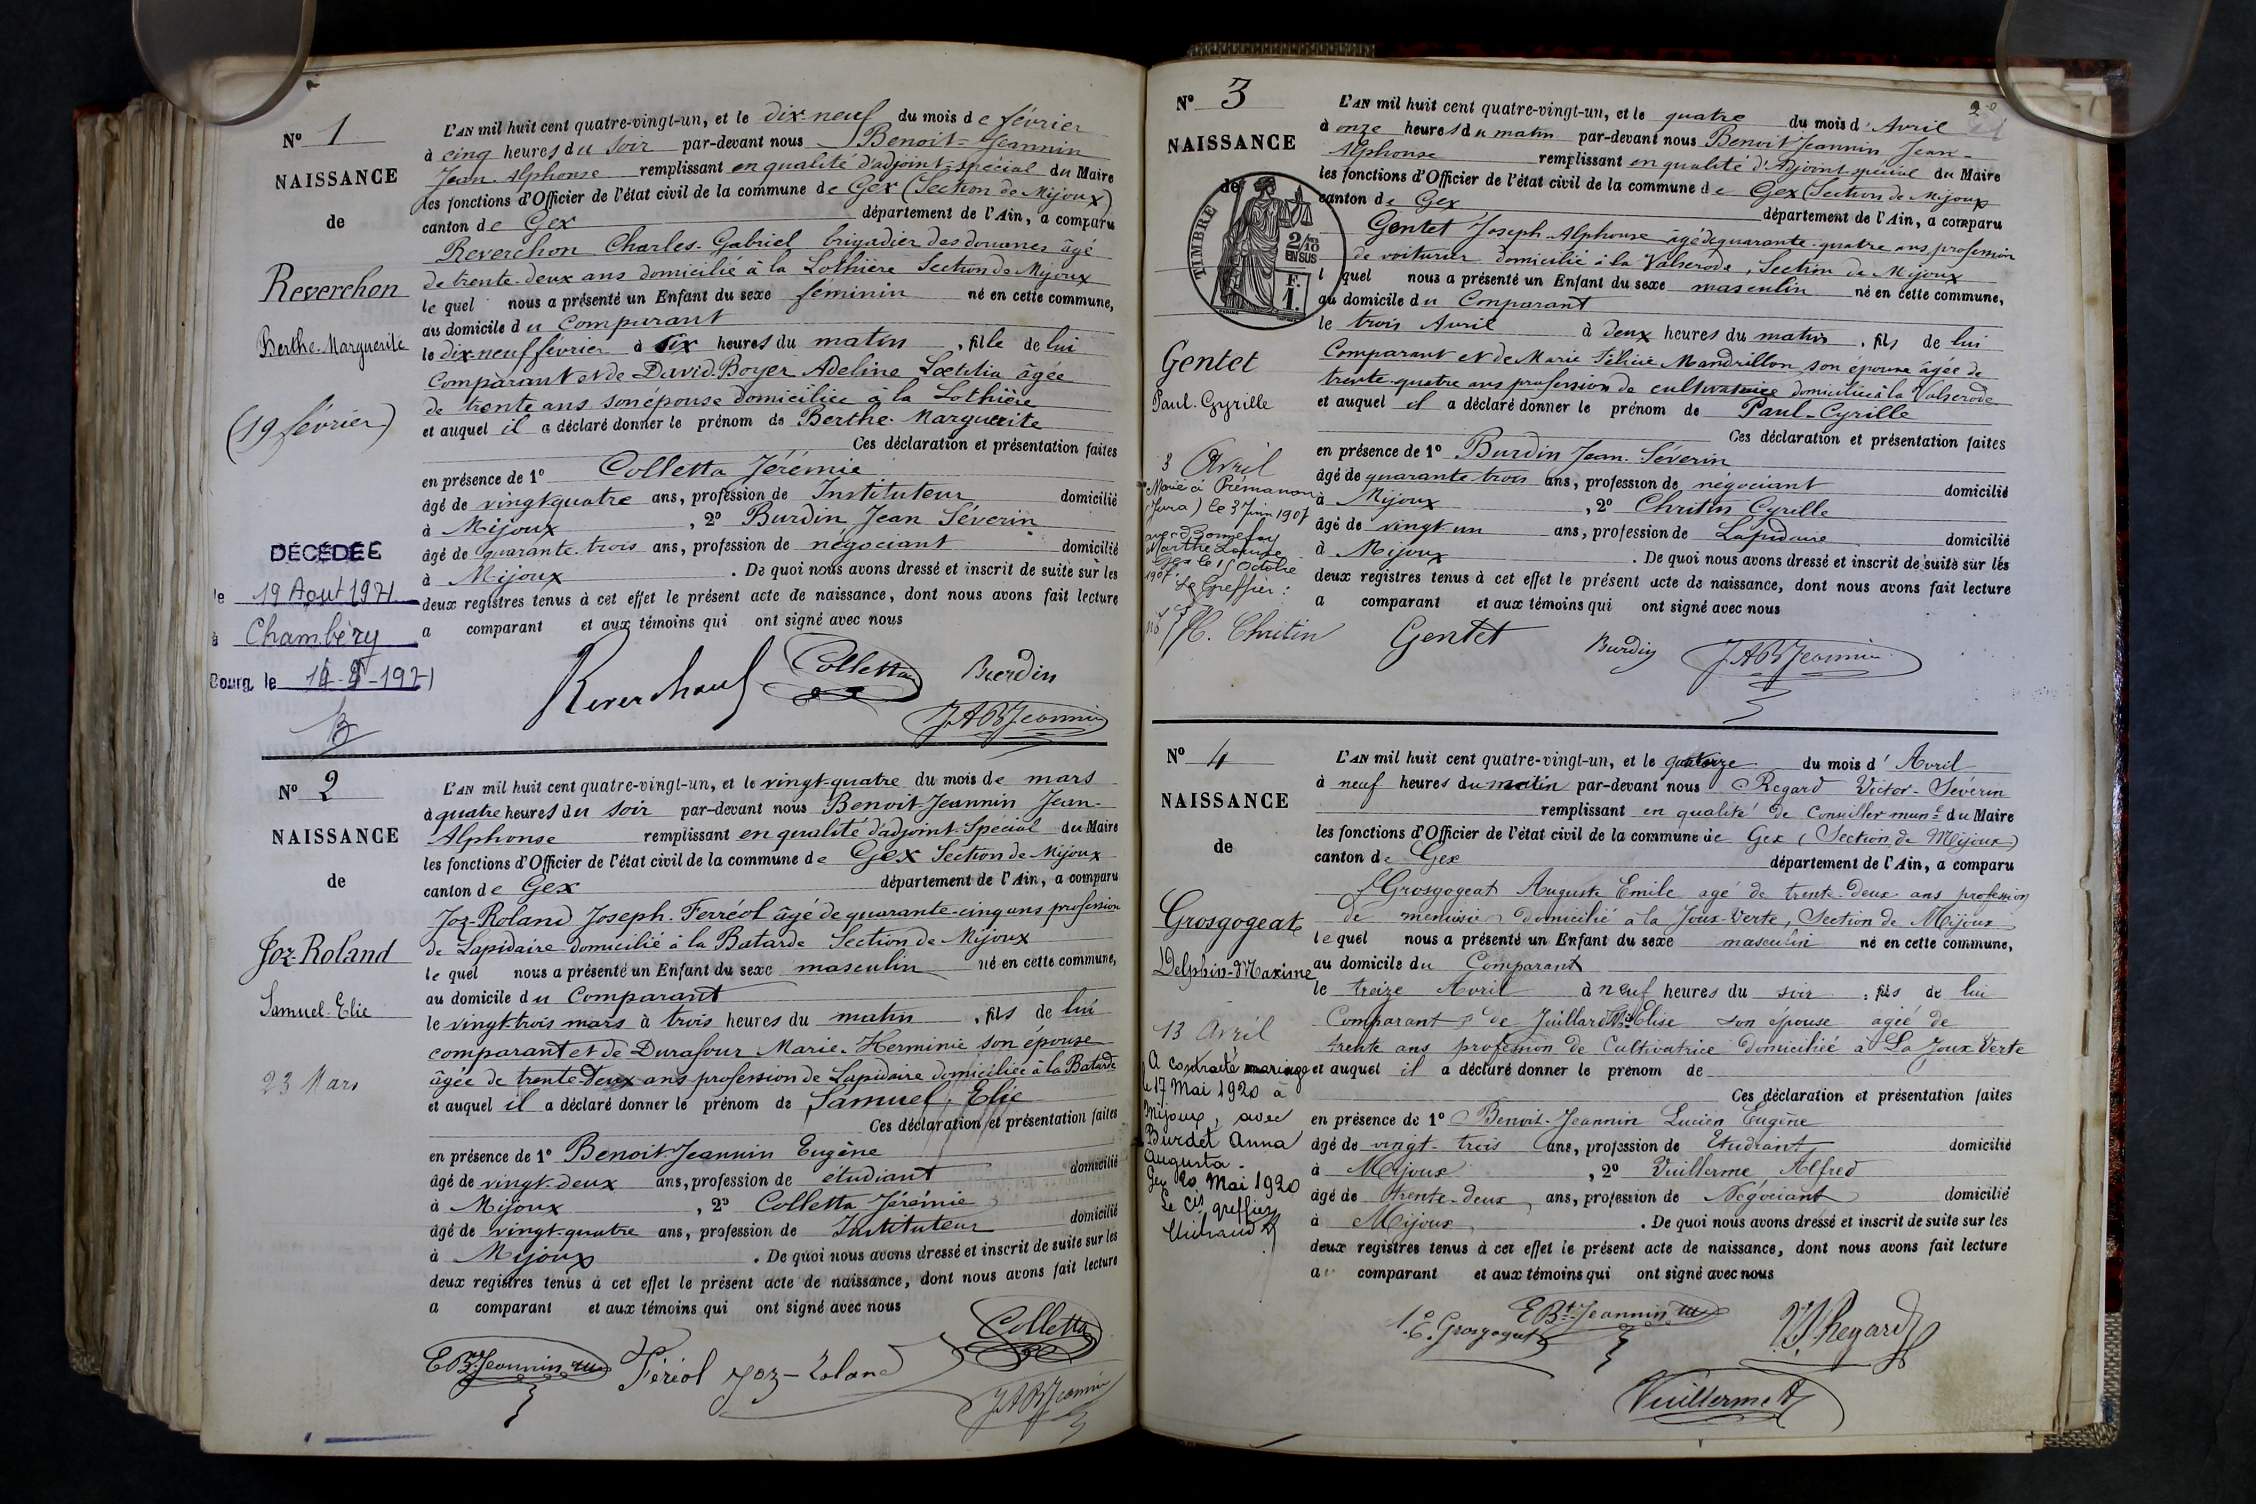 N° 1
NAISSANCE
de
Reverchon
Berthe-Marguerite
(19 février)
DÉCÉDÉE
le 19 Août 1971
à Chambéry
Bourg, le
L'AN mil huit cent quatre-vingt-un, et le dix-neuf du mois de février
à cinq heures du soir par-devant nous Benoit-Jeannin
Jean-Alphonse remplissant en qualité d'adjoint-spécial du Maire
les fonctions d'Officier de l'état civil de la commune de Gex (Section de Mijoux)
canton de Gex département de l'Ain, a comparu
Reverchon Charles-Gabriel brigadier des douanes âgé
de trente-deux ans domicilié à la Lothière Section de Mijoux
le quel nous a présenté un Enfant du sexe féminin né en cette commune,
au domicile du Comparant
le dix-neuf février à six heures du matin, fille de lui
Comparant et de David-Boyer Adeline Lœtitia âgée
de trente ans son épouse domiciliée à la Lothière
et auquel il a déclaré donner le prénom de Berthe-Marguerite
Ces déclaration et présentation faites
en présence de 1° Colletta Jérémie
âgé de vingt-quatre ans, profession de Instituteur domicilié
à Mijoux, 2° Burdin Jean Séverin
âgé de quarante-trois ans, profession de négociant domicilié
à Mijoux. De quoi nous avons dressé et inscrit de suite sur les
deux registres tenus à cet effet le présent acte de naissance, dont nous avons fait lecture
a comparant et aux témoins qui ont signé avec nous
Reverchon Colletta Burdin
J.A.B.Jeannin
N° 2
NAISSANCE
de
Joz-Roland
Samuel-Elie
23 Mars
L'AN mil huit cent quatre-vingt-un, et le vingt-quatre du mois de mars
à quatre heures du soir par-devant nous Benoit-Jeannin Jean-
Alphonse remplissant en qualité d'adjoint-Spécial du Maire
les fonctions d'Officier de l'état civil de la commune de Gex Section de Mijoux
canton de Gex département de l'Ain, a comparu
Joz-Roland Joseph-Ferréol âgé de quarante-cinq ans profession
de Lapidaire domicilié à la Batarde Section de Mijoux
le quel nous a présenté un Enfant du sexe masculin né en cette commune,
au domicile du Comparant
le vingt-trois mars à trois heures du matin, fils de lui
comparant et de Durafour Marie-Herminie son épouse
âgée de trente-Deux ans profession de Lapidaire domiciliée à la Batarde
et auquel il a déclaré donner le prénom de Samuel, Elie
Ces déclaration et présentation faites
en présence de 1° Benoit-Jeannin Eugène
âgé de vingt-deux ans, profession de étudiant domicilié
à Mijoux, 2° Colletta Jérémie
âgé de vingt-quatre ans, profession de Instituteur domicilié
à Mijoux. De quoi nous avons dressé et inscrit de suite sur les
deux registres tenus à cet effet le présent acte de naissance, dont nous avons fait lecture
a comparant et aux témoins qui ont signé avec nous
Colletta
E Bt Jeannin Féréol Joz-Roland
J.A.B.Jeannin
N° 3
NAISSANCE
de
TIMBRE
2/10
EN SUS
F.
1.
Gentet
Paul-Cyrille
3 Avril
Marié à Prémanon
(Jura) le 3 Juin 1907
avec Bonnefoy
Marthe Louise
Gex le 15 Octobre
1907.
Le Greffier:
2
L'AN mil huit cent quatre-vingt-un, et le quatre du mois d'Avril
à onze heures du matin par-devant nous Benoit Jeannin Jean-
Alphonse remplissant en qualité d'Adjoint spécial du Maire
les fonctions d'Officier de l'état civil de la commune de Gex (Section de Mijoux
canton de Gex département de l'Ain, a comparu
Gentet Joseph Alphonse âgé de quarante-quatre ans profession
de voiturier domicilié à la Valserode, Section de Mijoux
l quel nous a présenté un Enfant du sexe masculin né en cette commune,
au domicile du Comparant
le trois Avril à deux heures du matin, fils de lui
Comparant et de Marie Félicie Mandrillon son épouse âgée de
trente-quatre ans profession de cultivatrice domiciliée à la Valserode
et auquel il a déclaré donner le prénom de Paul-Cyrille
Ces déclaration et présentation faites
en présence de 1° Burdin Jean-Séverin
âgé de quarante trois ans, profession de négociant domicilié
à Mijoux, 2° Chritin Cyrille
âgé de vingt-un ans, profession de Lapidaire domicilié
à Mijoux. De quoi nous avons dressé et inscrit de suite sur les
deux registres tenus à cet effet le présent acte de naissance, dont nous avons fait lecture
a comparant et aux témoins qui ont signé avec nous
C. Chritin Gentet Burdin J.A.B.Jeannin
N° 4
NAISSANCE
de
Grosgogeat
Delphin-Maxime
13 Avril
A contracté mariage
le 17 Mai 1920 à
Mijoux, avec
Burdet Anna
Augusta.
Gex 20 Mai 1920
Le Cis greffier
L'AN mil huit cent quatre-vingt-un, et le quatorze du mois d'Avril
à neuf heures du matin par-devant nous Regard Victor-Séverin
remplissant en qualité de Conseiller mun.l du Maire
les fonctions d'Officier de l'état civil de la commune de Gex (Section de Mijoux)
canton de Gex département de l'Ain, a comparu
Grosgogeat Auguste Emile agé de trente-deux ans profession
de menuisier domicilié à la Joux-Verte, Section de Mijoux
lequel nous a présenté un Enfant du sexe masculin né en cette commune,
au domicile du Comparant
le treize Avril à neuf heures du soir, fils de lui
Comparant & de Juillard Elise son épouse agée de
trente ans profession de Cultivatrice domiciliée à La Joux Verte
et auquel il a déclaré donner le prénom de
Ces déclaration et présentation faites
en présence de 1° Benoit-Jeannin Lucien Eugène
âgé de vingt-trois ans, profession de Etudiant domicilié
à Mijoux, 2° Vuillerme Alfred
âgé de trente-deux ans, profession de Négociant domicilié
à Mijoux. De quoi nous avons dressé et inscrit de suite sur les
deux registres tenus à cet effet le présent acte de naissance, dont nous avons fait lecture
a comparant et aux témoins qui ont signé avec nous
E. Grosgogeat E Bt Jeannin V.S.Regard
Vuillerme A